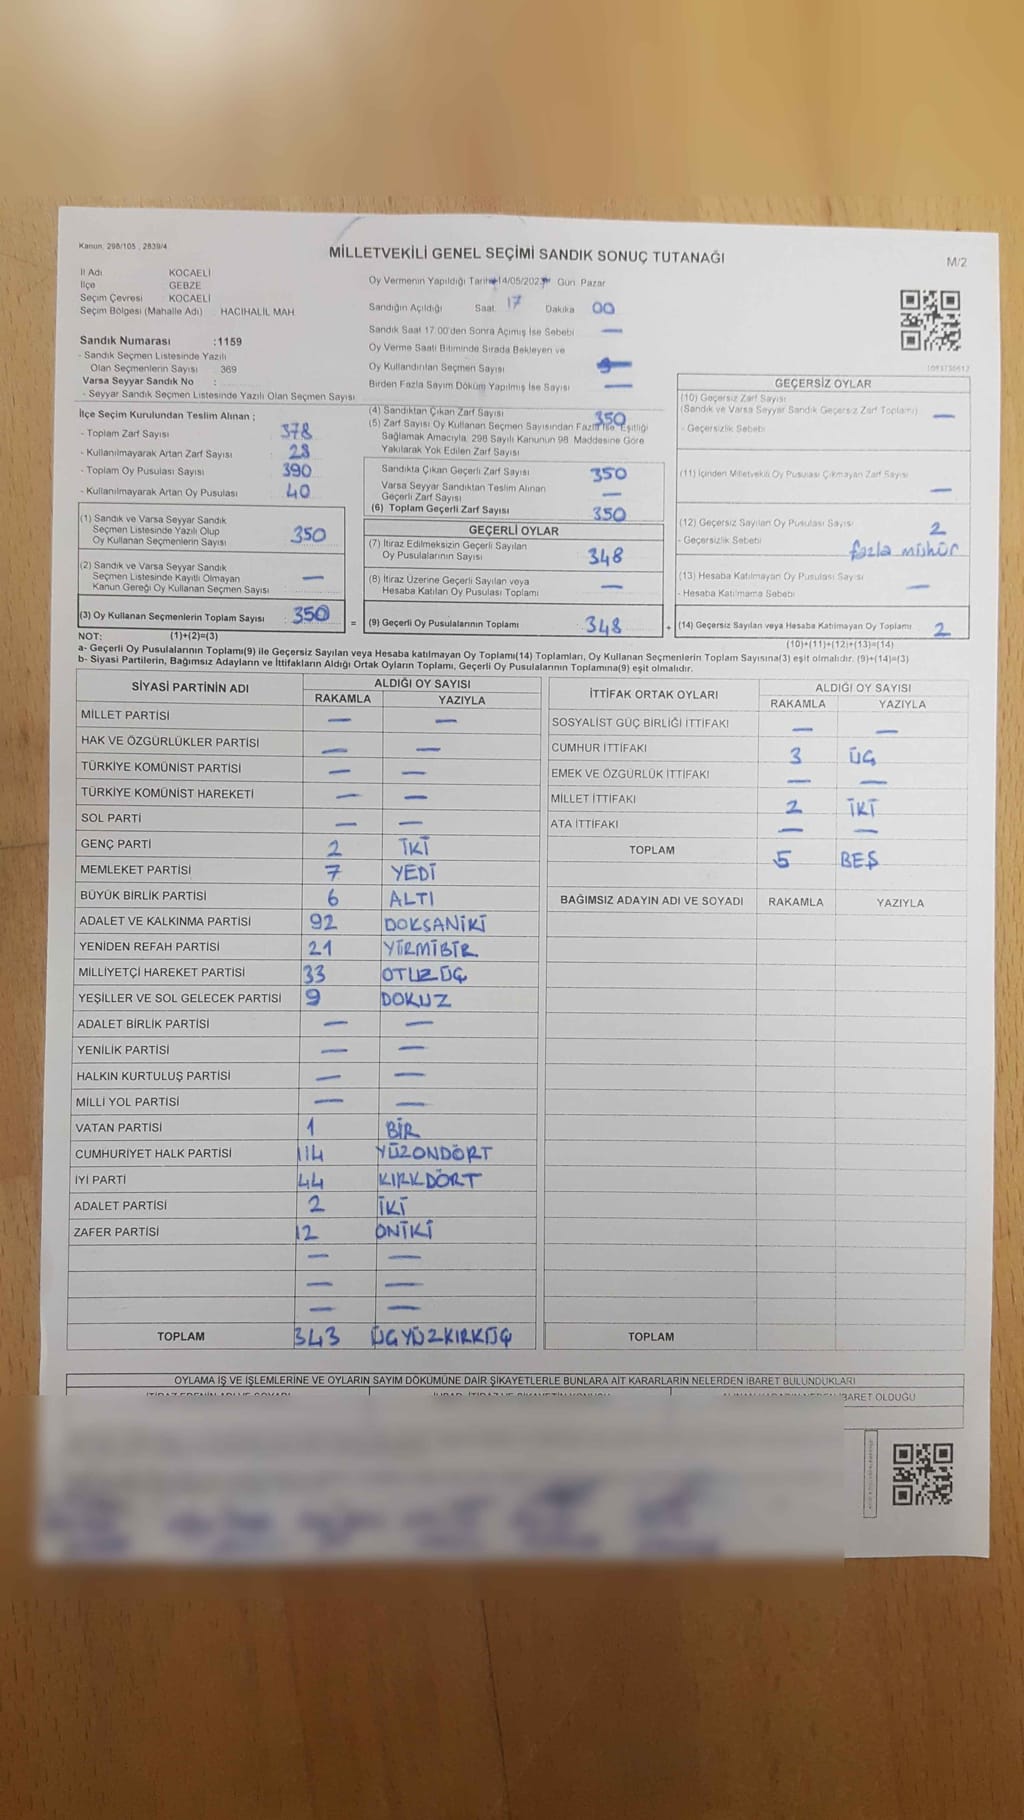 Kanun, 298/105 , 2839/4
MİLLETVEKİLİ GENEL SEÇİMİ SANDIK SONUÇ TUTANAĞI
M/2
İl Adı KOCAELİ
İlçe GEBZE
Seçim Çevresi KOCAELİ
Seçim Bölgesi (Mahalle Adı) HACIHALİL MAH
Sandık Numarası :1159
- Sandık Seçmen Listesinde Yazılı
Olan Seçmenlerin Sayısı 369
Varsa Seyyar Sandık No :
- Seyyar Sandık Seçmen Listesinde Yazılı Olan Seçmen Sayısı
Oy Vermenin Yapıldığı Tarih 14/05/2023 Gün Pazar
Sandığın Açıldığı Saat 17 Dakika 00
Sandık Saat 17.00'den Sonra Açımış İse Sebebi —
Oy Verme Saati Bitiminde Sırada Bekleyen ve
Oy Kullandırılan Seçmen Sayısı
Birden Fazla Sayım Döküm Yapılmış İse Sayısı —
1093750612
İlçe Seçim Kurulundan Teslim Alınan ;
- Toplam Zarf Sayısı 378
- Kullanılmayarak Artan Zarf Sayısı 28
- Toplam Oy Pusulası Sayısı 390
- Kullanılmayarak Artan Oy Pusulası 40
(1) Sandık ve Varsa Seyyar Sandık
Seçmen Listesinde Yazılı Olup
Oy Kullanan Seçmenlerin Sayısı 350
(2) Sandık ve Varsa Seyyar Sandık
Seçmen Listesinde Kayıtlı Olmayan
Kanun Gereği Oy Kullanan Seçmen Sayısı —
(3) Oy Kullanan Seçmenlerin Toplam Sayısı 350
(4) Sandıktan Çıkan Zarf Sayısı 350
(5) Zarf Sayısı Oy Kullanan Seçmen Sayısından Fazla ise, Eşitliği
Sağlamak Amacıyla, 298 Sayılı Kanunun 98. Maddesine Göre
Yakılarak Yok Edilen Zarf Sayısı
Sandıkta Çıkan Geçerli Zarf Sayısı 350
Varsa Seyyar Sandıktan Teslim Alınan
Geçerli Zarf Sayısı —
(6) Toplam Geçerli Zarf Sayısı 350
GEÇERLİ OYLAR
(7) İtiraz Edilmeksizin Geçerli Sayılan
Oy Pusulalarının Sayısı 348
(8) İtiraz Üzerine Geçerli Sayılan veya
Hesaba Katılan Oy Pusulası Toplamı —
= (9) Geçerli Oy Pusulalarının Toplamı 348
GEÇERSİZ OYLAR
(10) Geçersiz Zarf Sayısı
(Sandık ve Varsa Seyyar Sandık Geçersiz Zarf Toplamı) —
- Geçersizlik Sebebi
(11) İçinden Milletvekili Oy Pusulası Çıkmayan Zarf Sayısı —
(12) Geçersiz Sayılan Oy Pusulası Sayısı 2
- Geçersizlik Sebebi fazla mühür
(13) Hesaba Katılmayan Oy Pusulası Sayısı —
- Hesaba Katılmama Sebebi
+ (14) Geçersiz Sayılan veya Hesaba Katılmayan Oy Toplamı 2
NOT: (1)+(2)=(3)
(10)+(11)+(12)+(13)=(14)
a- Geçerli Oy Pusulalarının Toplamı(9) ile Geçersiz Sayılan veya Hesaba katılmayan Oy Toplamı(14) Toplamları, Oy Kullanan Seçmenlerin Toplam Sayısına(3) eşit olmalıdır. (9)+(14)=(3)
b- Siyasi Partilerin, Bağımsız Adayların ve İttifakların Aldığı Ortak Oyların Toplamı, Geçerli Oy Pusulalarının Toplamına(9) eşit olmalıdır.
SİYASİ PARTİNİN ADI
ALDIĞI OY SAYISI
RAKAMLA YAZIYLA
MİLLET PARTİSİ — —
HAK VE ÖZGÜRLÜKLER PARTİSİ — —
TÜRKİYE KOMÜNİST PARTİSİ — —
TÜRKİYE KOMÜNİST HAREKETİ — —
SOL PARTİ — —
GENÇ PARTİ 2 İKİ
MEMLEKET PARTİSİ 7 YEDİ
BÜYÜK BİRLİK PARTİSİ 6 ALTI
ADALET VE KALKINMA PARTİSİ 92 DOKSANİKİ
YENİDEN REFAH PARTİSİ 21 YİRMİBİR
MİLLİYETÇİ HAREKET PARTİSİ 33 OTUZÜÇ
YEŞİLLER VE SOL GELECEK PARTİSİ 9 DOKUZ
ADALET BİRLİK PARTİSİ — —
YENİLİK PARTİSİ — —
HALKIN KURTULUŞ PARTİSİ — —
MİLLİ YOL PARTİSİ — —
VATAN PARTİSİ 1 BİR
CUMHURİYET HALK PARTİSİ 114 YÜZONDÖRT
İYİ PARTİ 44 KIRKDÖRT
ADALET PARTİSİ 2 İKİ
ZAFER PARTİSİ 12 ONİKİ
— —
— —
— —
TOPLAM 343 ÜÇYÜZKIRKÜÇ
İTTİFAK ORTAK OYLARI
ALDIĞI OY SAYISI
RAKAMLA YAZIYLA
SOSYALİST GÜÇ BİRLİĞİ İTTİFAKI — —
CUMHUR İTTİFAKI 3 ÜÇ
EMEK VE ÖZGÜRLÜK İTTİFAKI — —
MİLLET İTTİFAKI 2 İKİ
ATA İTTİFAKI — —
TOPLAM 5 BEŞ
BAĞIMSIZ ADAYIN ADI VE SOYADI RAKAMLA YAZIYLA
TOPLAM
OYLAMA İŞ VE İŞLEMLERİNE VE OYLARIN SAYIM DÖKÜMÜNE DAİR ŞİKAYETLERLE BUNLARA AİT KARARLARIN NELERDEN İBARET BULUNDUKLARI
İBARET OLDUĞU